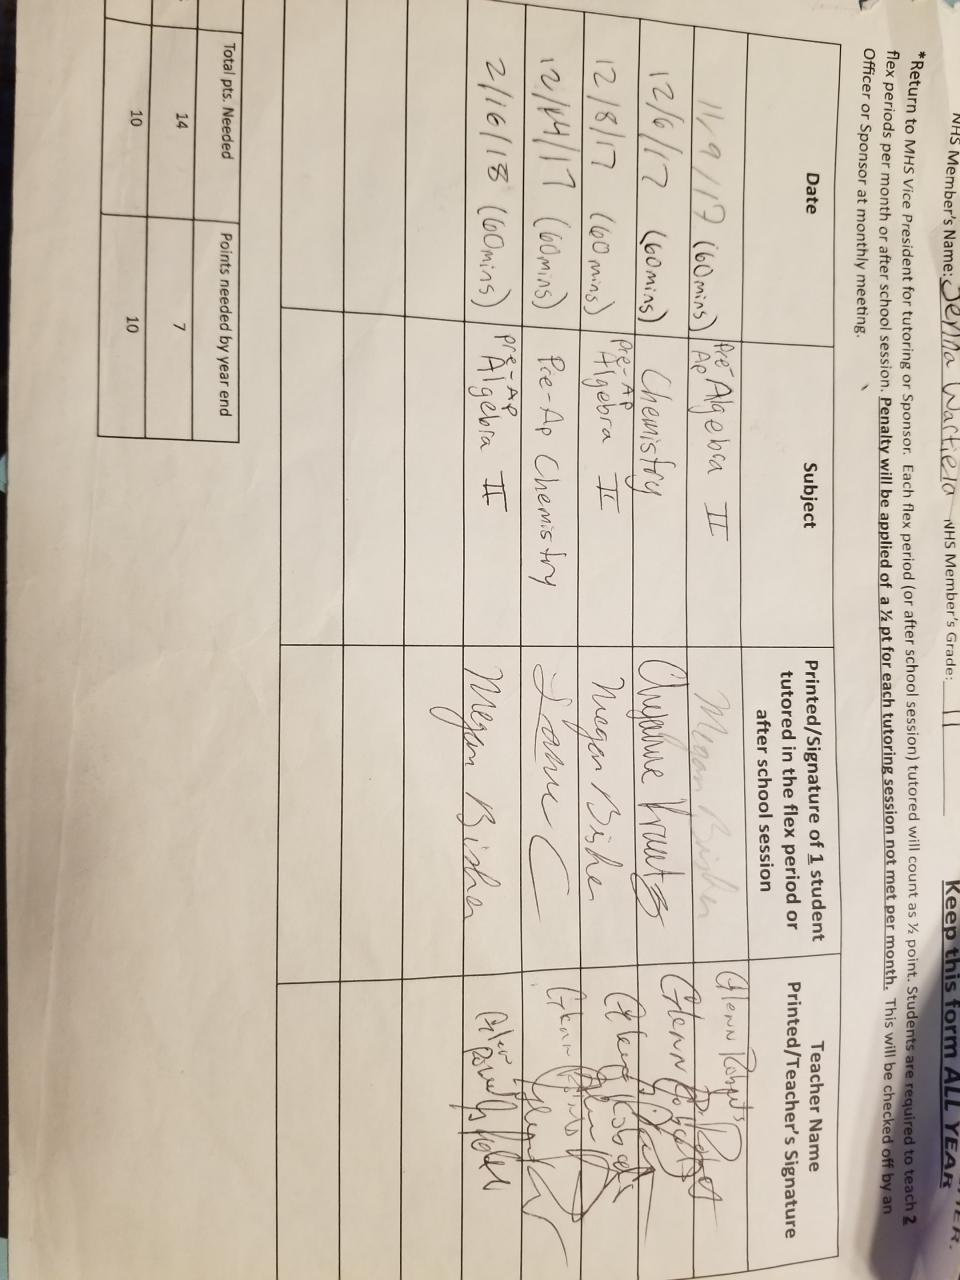 NHS Member's Name: Jenna Warfield NHS Member's Grade: 11 Keep this form ALL YEAR
*Return to MHS Vice President for tutoring or Sponsor. Each flex period (or after school session) tutored will count as ½ point. Students are required to teach 2
flex periods per month or after school session. Penalty will be applied of a ½ pt for each tutoring session not met per month. This will be checked off by an
Officer or Sponsor at monthly meeting.
Date Subject Printed/Signature of 1 student tutored in the flex period or after school session Teacher Name Printed/Teacher's Signature
(60mins) Pre-AP Algebra II Megan Bisher Glenn Roberts
12/6/17 (60mins) Chemistry Glenn Roberts
12/8/17 (60 mins) Pre-AP Algebra II Megan Bisher Glenn Roberts
12/14/17 (60mins) Pre-Ap Chemistry Glenn Roberts
2/16/18 (60mins) Pre-AP Algebra II Megan Bisher
Total pts. Needed Points needed by year end
14 7
10 10